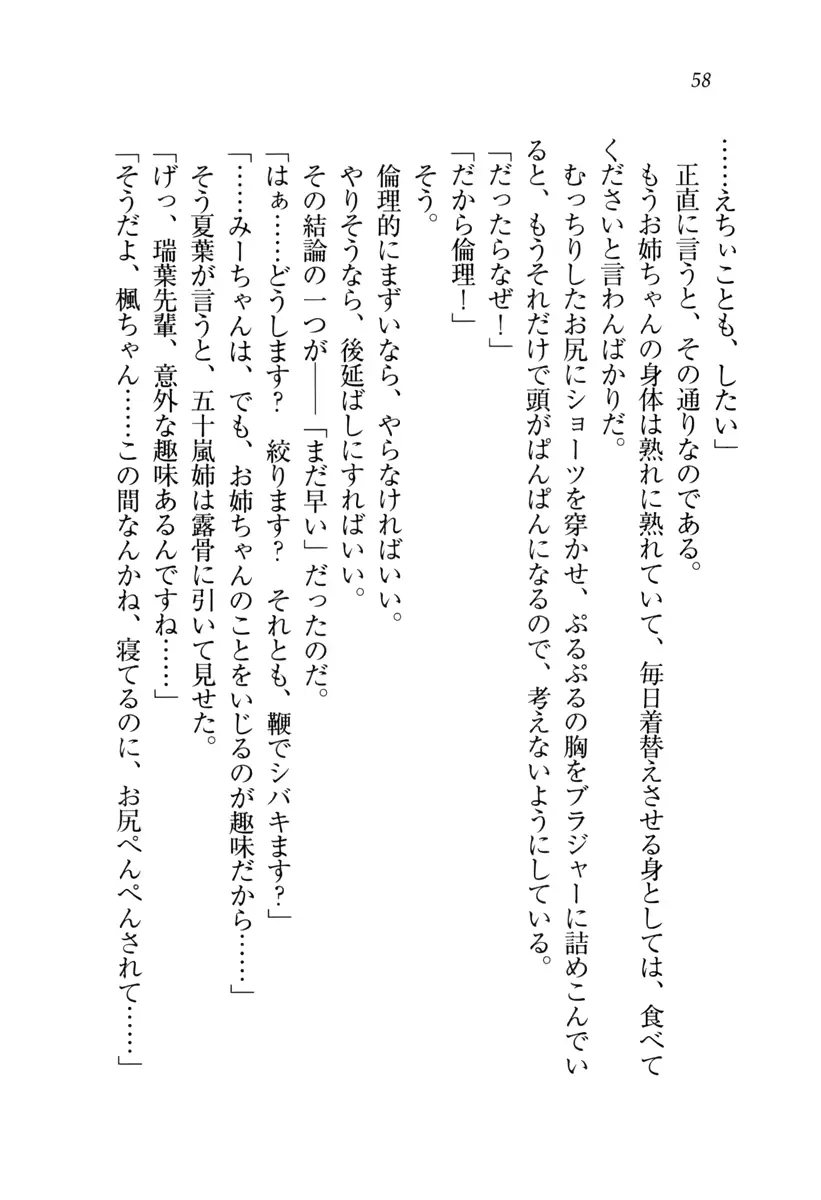 58
……えちぃことも、したい」
　正直に言うと、その通りなのである。
　もうお姉ちゃんの身体は熟れに熟れていて、毎日着替えさせる身としては、食べて
くださいと言わんばかりだ。
　むっちりしたお尻にショーツを穿かせ、ぷるぷるの胸をブラジャーに詰めこんでい
ると、もうそれだけで頭がぱんぱんになるので、考えないようにしている。
「だったらなぜ！」
「だから倫理！」
　そう。
　倫理的にまずいなら、やらなければいい。
　やりそうなら、後延ばしにすればいい。
　その結論の一つが――「まだ早い」だったのだ。
「はぁ……どうします？　絞ります？　それとも、鞭でシバキます？」
「……みーちゃんは、でも、お姉ちゃんのことをいじるのが趣味だから……」
　そう夏葉が言うと、五十嵐姉は露骨に引いて見せた。
「げっ、瑞葉先輩、意外な趣味あるんですね……」
「そうだよ、楓ちゃん……この間なんかね、寝てるのに、お尻ぺんぺんされて……」